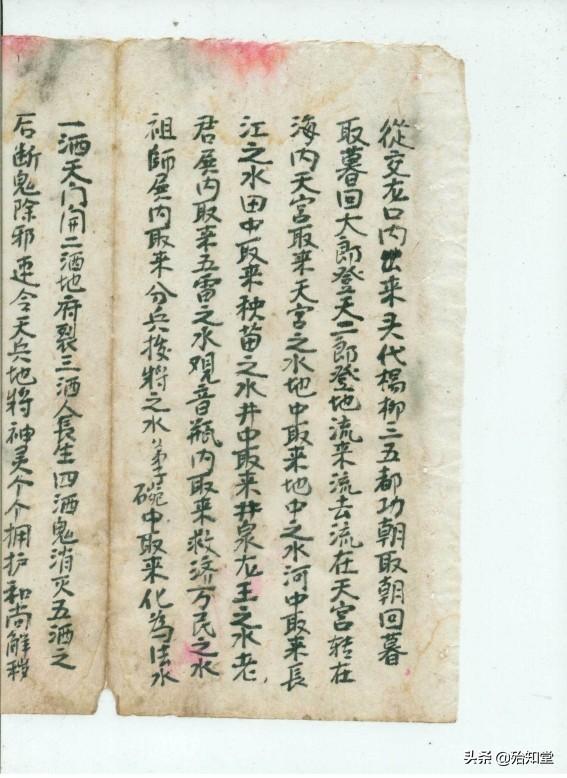 從交龙口内出来头代楊柳二五都功朝取朝回暮
取暮回大郎登天二郎登地流来流去流在天宫转在
海内天宫取来天宫之水地中取来地中之水河中取来長
江之水田中取来秧苗之水井中取来井泉龙王之水老
君屋内取来五雷之水观音瓶内取来救济万民之水
祖師屋内取来分兵拨將之水碗中取来化為法水
一洒天门開二洒地府裂三洒人長生四洒鬼消灭五洒之
后断鬼除邪速令天兵地將神灵个个拥护和尚解秽
头条 @殆知堂